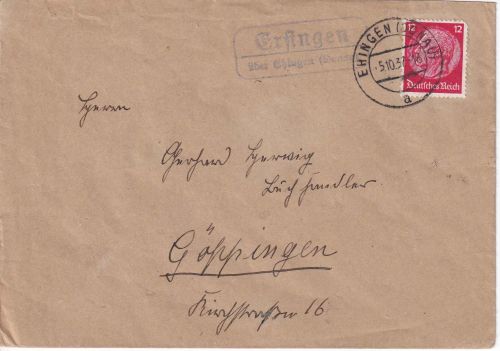 Ersingen
über Ehingen (Donau)
EHINGEN (DONAU)
5.10.37
a
12 12
Deutsches Reich
Herrn
Gerhard Herwig
Buchhändler
Göppingen
Kirchstraße 16